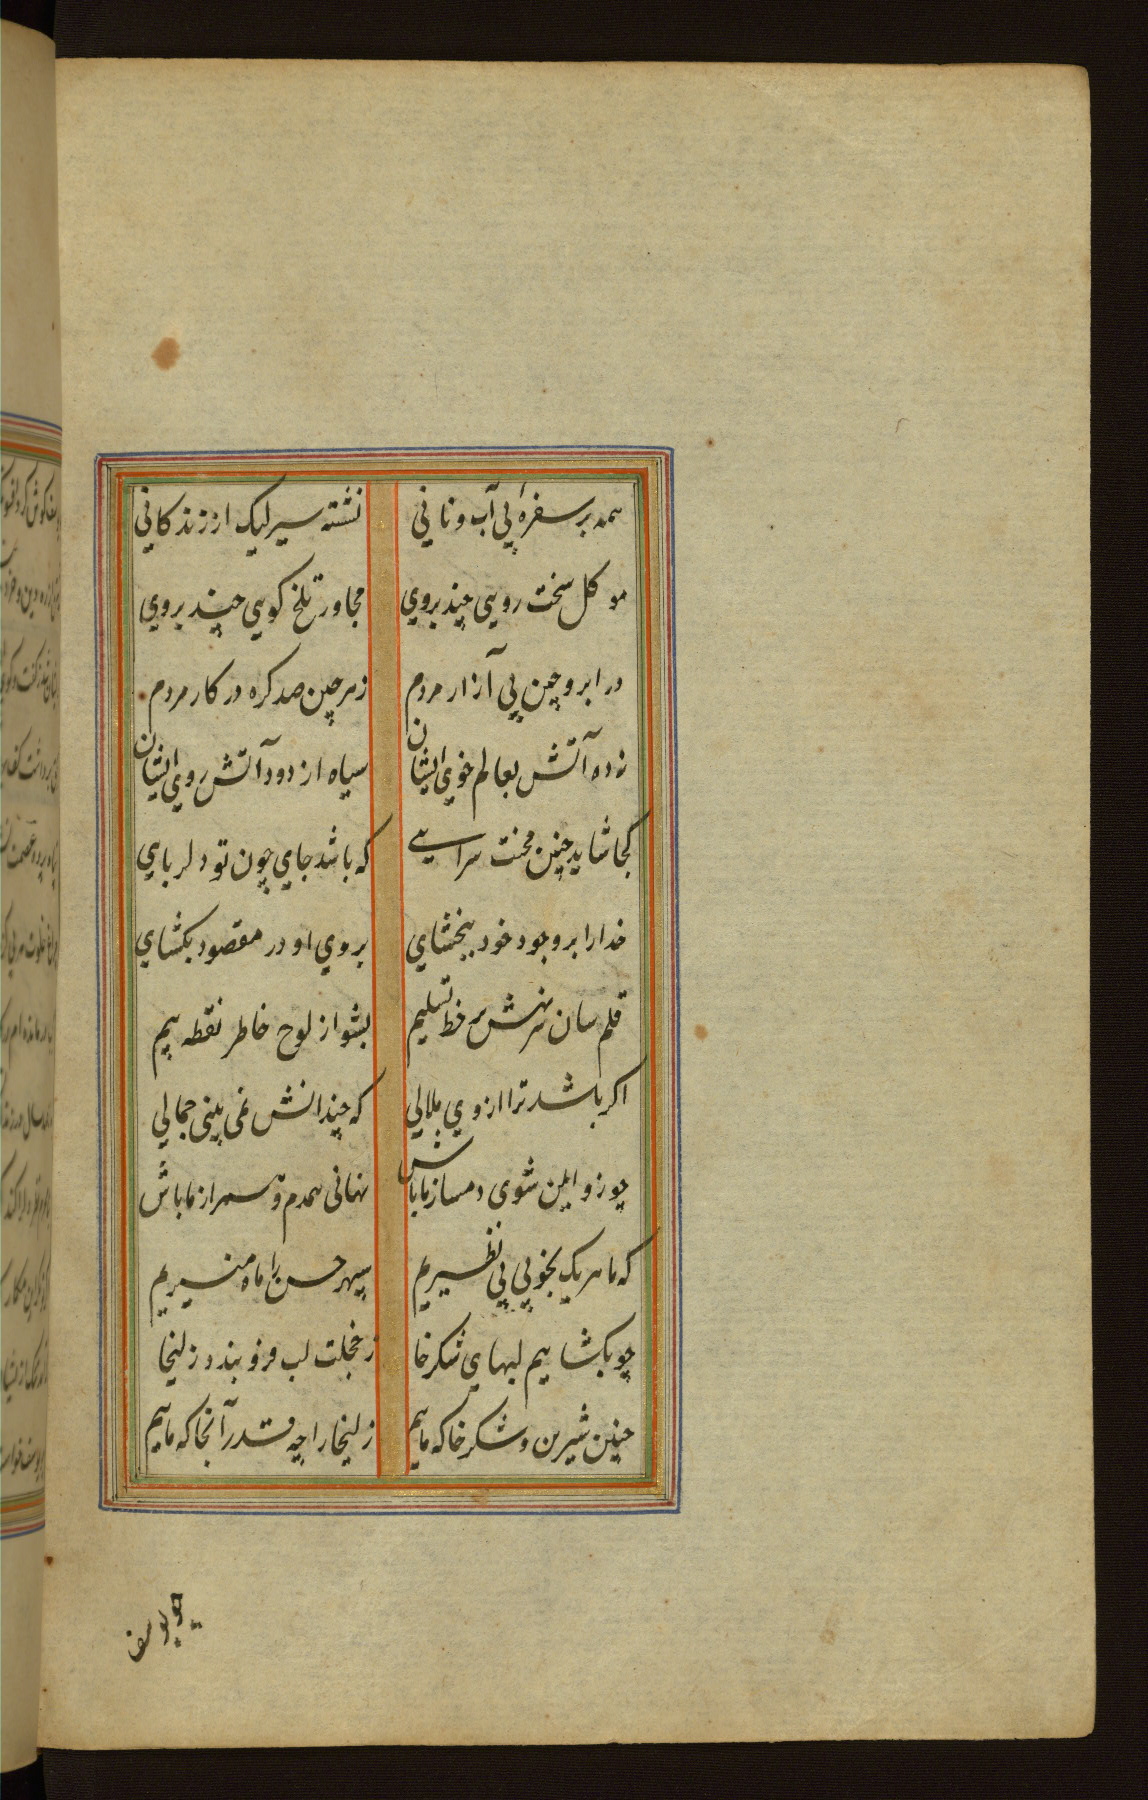 همه بر سفرهٔ بی آب و نانی نشسته سیر لیک از زندگانی
موکل سخت رویی چند بروی مجاور تلخ گویی چند بروی
در ابرو چین پی آزار مردم ز هر چین صد گره در کار مردم
زده آتش بعالم خوی ایشان سیاه از دود آتش روی ایشان
کجا شاید چنین محنت سرایی که باشد جای چون تو دلربای
خدا را بر وجود خود ببخشای بروی او در مقصود بگشای
قلم سان سر نهش بر خط تسلیم بشو از لوح خاطر نقطه بیم
اگر باشد ترا از وی ملالی که چندانش نمی بینی جمالی
چو زو ایمن شوی دمساز ما باش نهانی همدم و همراز ما باش
که ما هر یک بخوبی بی نظیریم سپهر حسن را ماه منیریم
چو بگشاییم لبهای شکرخا ز خجلت لب فرو بندد زلیخا
چنین شیرین و شکرخا که ماییم زلیخا را چه قدر آنجا که ماییم
چو یوسف